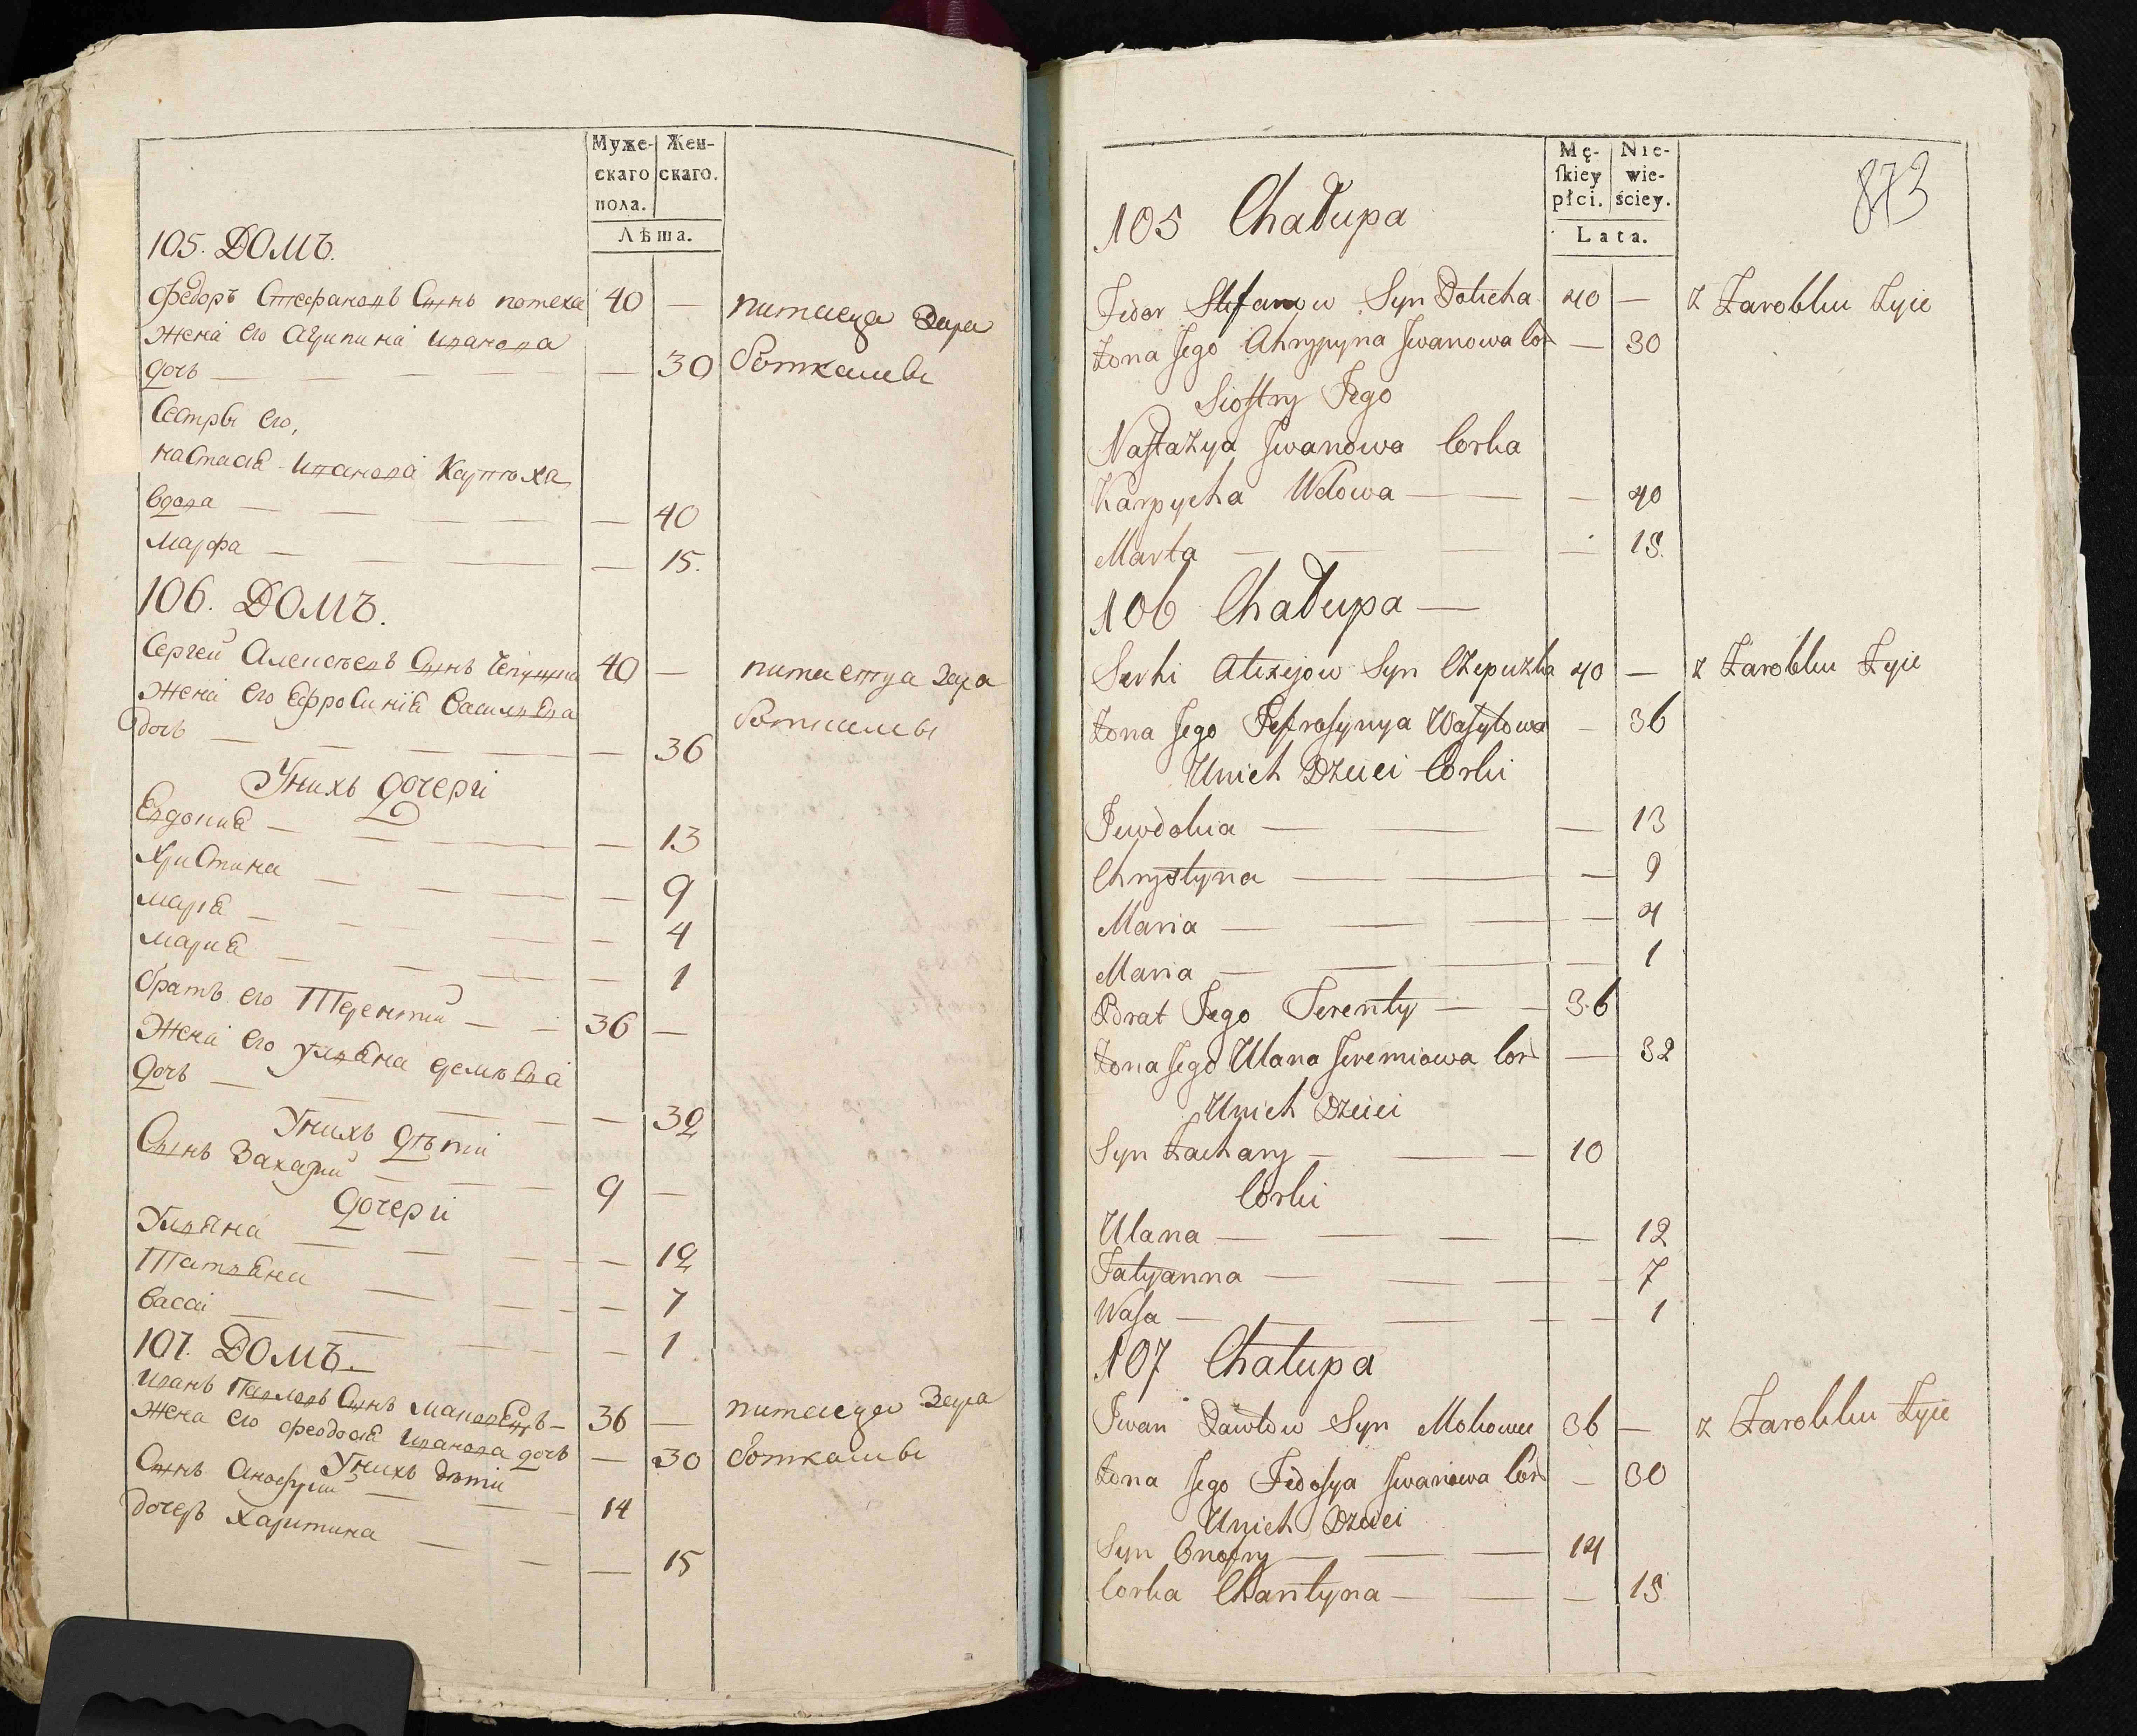 Муже-
скаго
пола.
Жен-
скаго.
Лѣта.
105. Домъ.
Федоръ Стефановъ Сынъ потеха 40 —
Жена его Агрипина Иванова
дочь — 30
питается Зара
ботками
Сестры его,
настасія Иванова Карпюха
вдова — 40
Марфа — 15.
106. Домъ.
Сергей Алексѣевъ Сынъ 40 —
Жена его Ефросинія Васильева
дочь — 36
питается Зара
ботками
У нихъ дочери
Евдокия — 13
Христина — 9
Марія — 4
Мария — 1
братъ его Терентий — 36 —
Жена его Ульяна
дочь — 32
У нихъ дѣти
Сынъ Захарий — 9 —
дочери
Ульяна — 12
Татьяна — 7
Васса — 1
107. Домъ.
Иванъ Павловъ Сынъ — 36 —
Жена его Феодосія Иванова дочь — 30
питается Зара
ботками
У нихъ дѣти
Сынъ — 14
дочерь Харитина — 15
Mę-
ſkiey
płci.
Nie-
wie-
ściey.
Lata.
873
105 Chałupa
Fedor Stefanow Syn 40 — z Zarobku Zyie
Zona Jego Ahrypyna Jwanowa Cor — 30
Siostry Jego
Nastazya Jwanowa Corka
Karpycha Wdowa — 40
Marta — 15.
106 Chałupa —
Serhi Alexejow Syn Czepuzka 40 — z Zarobku Zyie
Zona Jego Jefrosynya Wasylowa — 36
Unich Dzieci Corki
Jewdokia — 13
Chrystyna — 9
Maria — 4
Maria — 1
Brat Jego Terenty — 36
Zona Jego Ulana Jeremiowa Cor — 32
Unich Dzieci
Syn Zachary — 10
Corki
Ulana — 12
Tatyanna — 7
Wasa — 1
107 Chałupa
Jwan Pawłow Syn 36 — z Zarobku Zyie
Zona Jego Fedosya Jwanowa Cor — 30
Unich Dzieci
Syn Onofry — 14
Corka Charytyna — 15